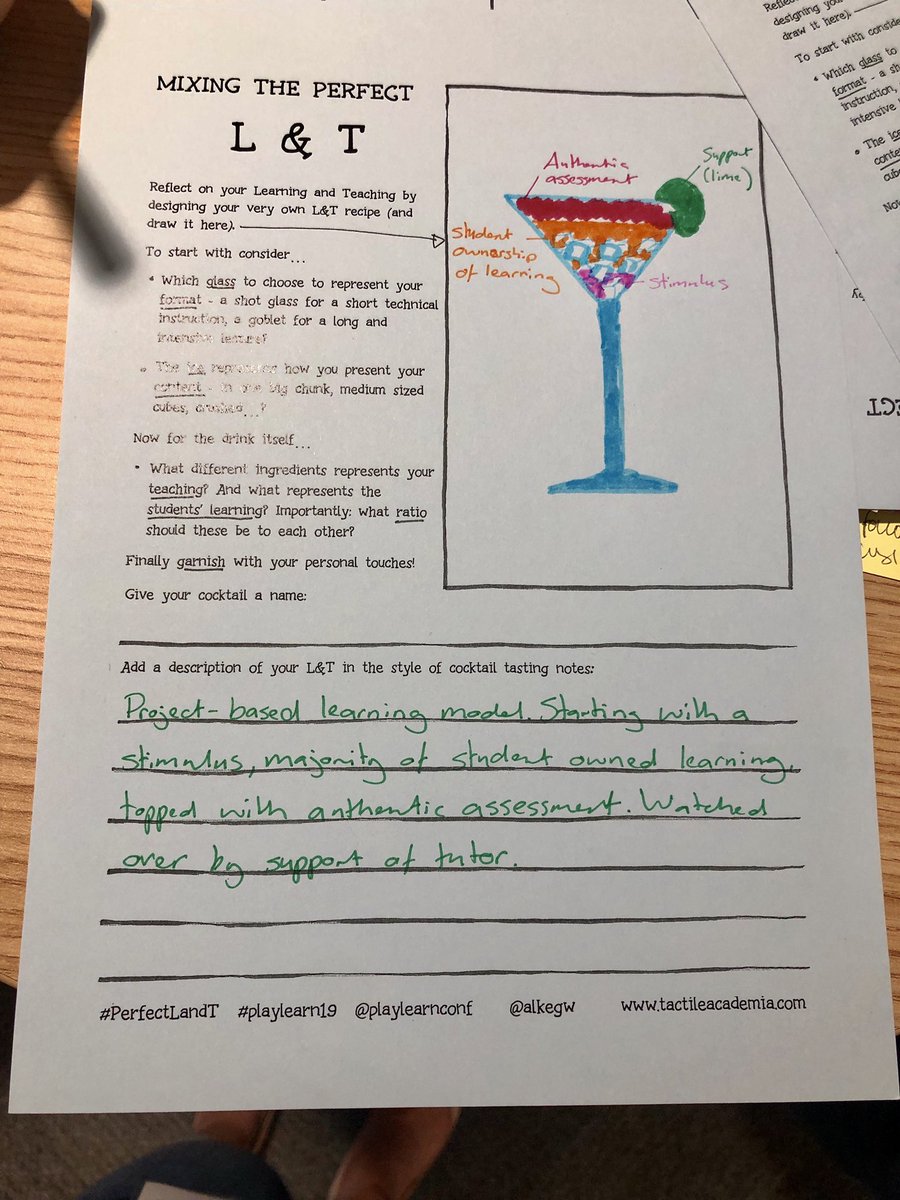 MIXING THE PERFECT
L & T
Reflect on your Learning and Teaching by
designing your very own L&T recipe (and
draw it here).
To start with consider...
• Which glass to choose to represent your
format - a shot glass for a short technical
instruction, a goblet for a long and
intensive lecture?
• The ice represents how you present your
content - in one big chunk, medium sized
cubes, crushed...?
Now for the drink itself...
• What different ingredients represents your
teaching? And what represents the
students' learning? Importantly: what ratio
should these be to each other?
Finally garnish with your personal touches!
Give your cocktail a name:
Authentic
assessment
Support
(lime)
Student
ownership
of learning
stimulus
Add a description of your L&T in the style of cocktail tasting notes:
Project-based learning model. Starting with a
stimulus, majority of student owned learning,
topped with authentic assessment. Watched
over by support of tutor.
#PerfectLandT #playlearn19 @playlearnconf @alkegw www.tactileacademia.com
Reflec
designing you
draw it here).
To start with conside
• Which glass to
format - a sho
instruction,
intensive l
• The ice
conte
cube
Now